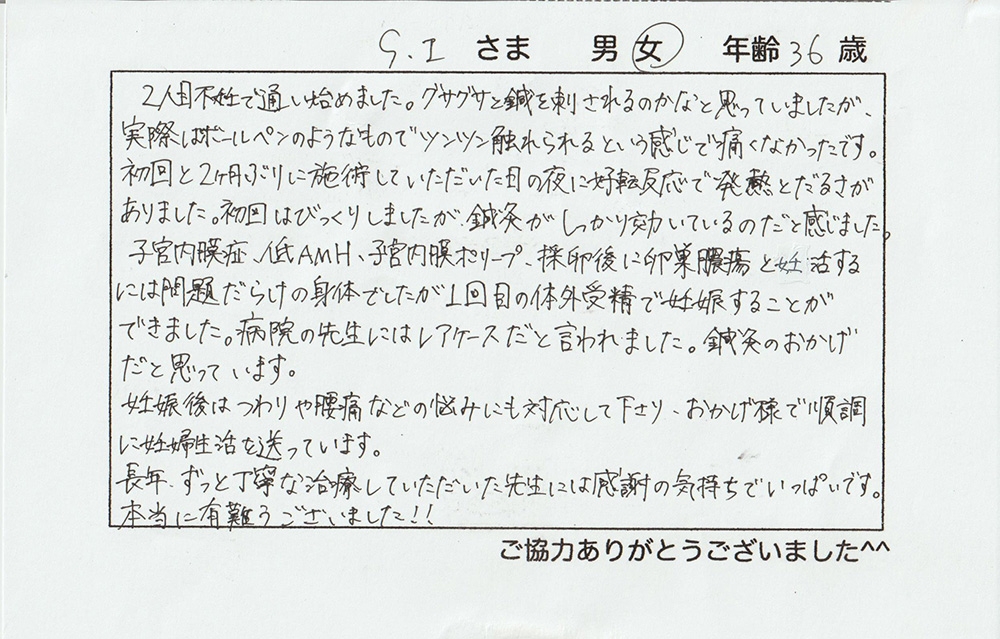 S.I さま 男 女 年齢 36 歳
2人目不妊で通い始めました。グサグサと鍼を刺されるのかなと思っていましたが、
実際はボールペンのようなものでツンツン触れられるという感じで痛くなかったです。
初回と2ヶ月ぶりに施術していただいた日の夜に好転反応で発熱とだるさが
ありました。初回はびっくりしましたが、鍼灸がしっかり効いているのだと感じました。
子宮内膜症、低AMH、子宮内膜ポリープ、採卵後に卵巣膿瘍と妊活する
には問題だらけの身体でしたが1回目の体外受精で妊娠することが
できました。病院の先生にはレアケースだと言われました。鍼灸のおかげ
だと思っています。
妊娠後はつわりや腰痛などの悩みにも対応して下さり、おかげ様で順調
に妊婦生活を送っています。
長年、ずっと丁寧な治療していただいた先生には感謝の気持ちでいっぱいです。
本当に有難うございました!!
ご協力ありがとうございました^^